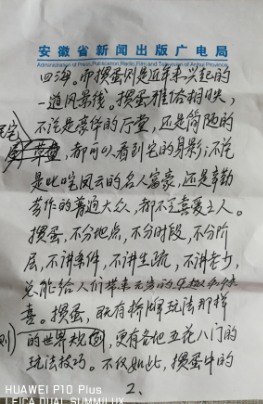 安徽省新闻出版广电局
四海。而掼蛋倒是近年来兴起的
一道风景线。掼蛋雅俗相映，
不论是豪华的厅堂，还是简陋的
都可以看到它的身影；不论
是叱咤风云的名人富豪，还是辛勤
劳作的普通大众，都不乏喜爱之人。
掼蛋，不分地点，不分时段，不分阶
层，不讲条件，不讲生疏，不讲老少，
总能给人们带来无穷的乐趣和
喜。掼蛋，既有桥牌玩法那样
的世界，更有各地五花八门的
玩法技巧。不仅如此，掼蛋中的
2、
HUAWEI P10 Plus
LEICA DUAL SUMMILUX